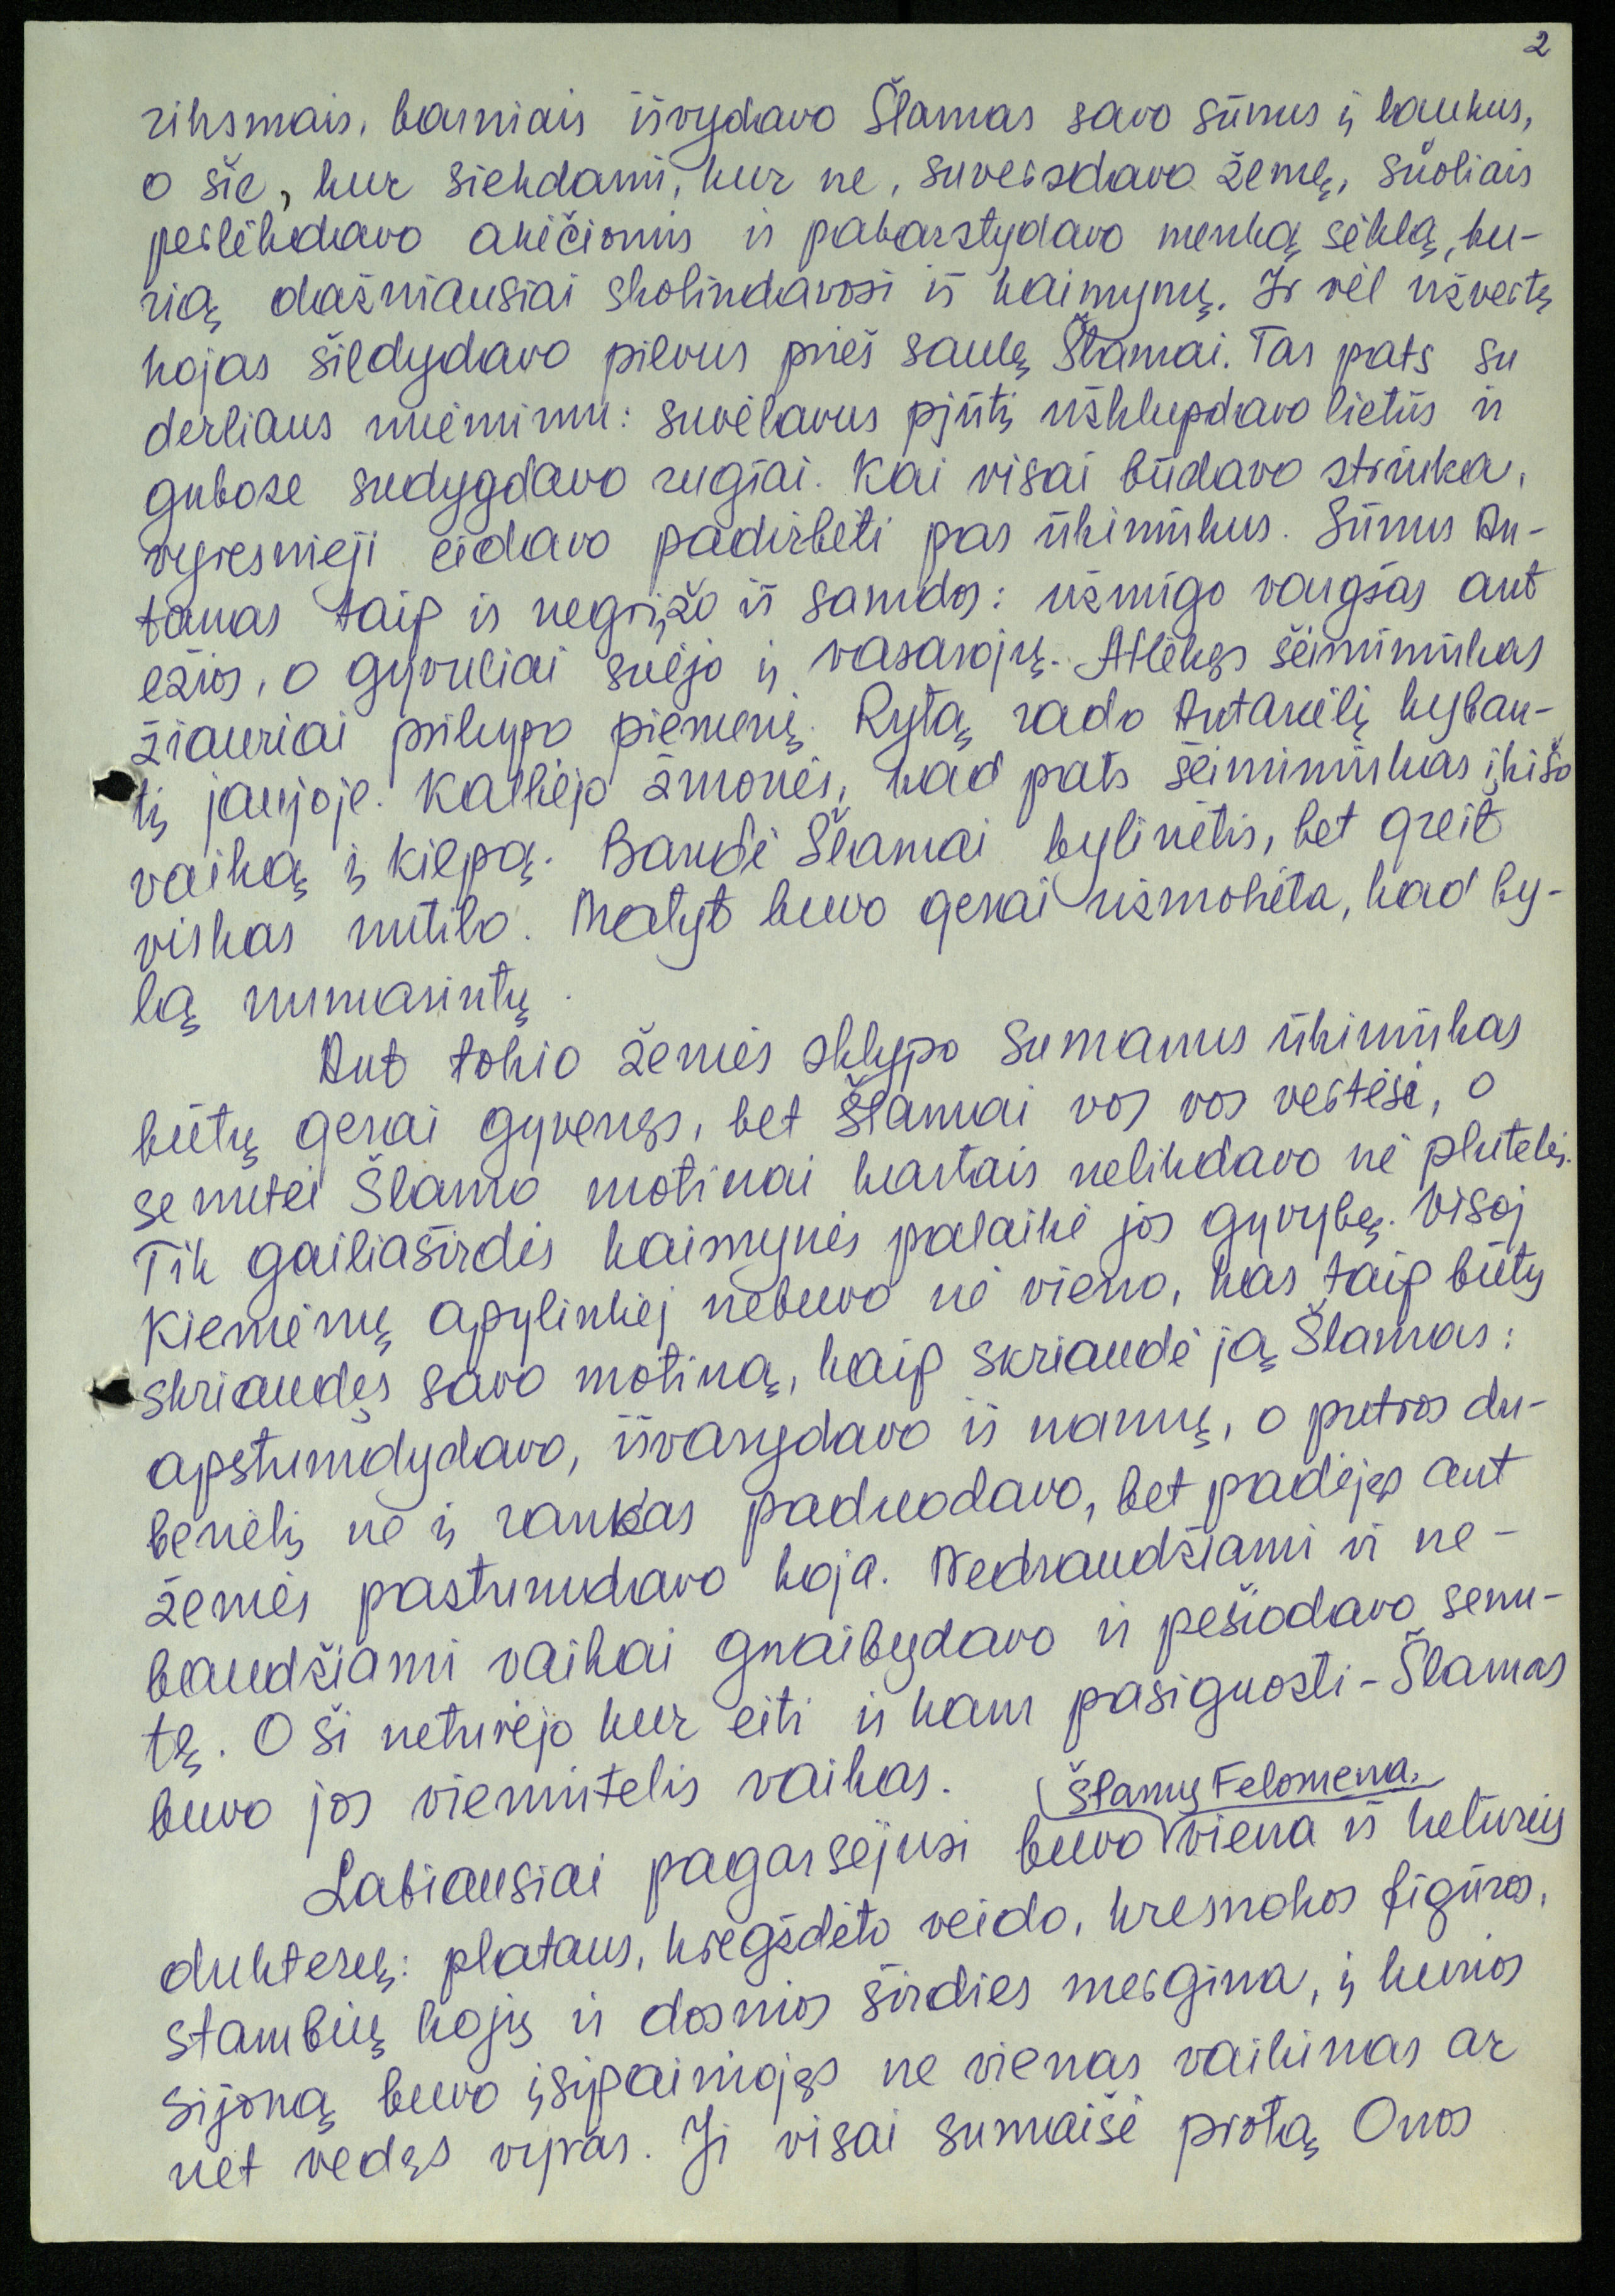 2
riksmais, barniais išvydavo Šlamas savo sūnus į laukus,
o šie, kur siekdami, kur ne, suversdavo žemę, šuoliais
perlėkdavo akėčiomis ir pabarstydavo menką sėklą, ku-
rią dažniausiai skolindavosi iš kaimynų. Ir vėl užvertę
kojas šildydavo pilvus prieš saulę Šlamai. Tas pats su
derliaus nuėmimu: suvėlavus pjūtį užklupdavo lietūs ir
gubose sudygdavo rugiai. Kai visai būdavo striuka,
vyresnieji eidavo padirbėti pas ūkininkus. Sūnus An-
tanas taip ir negrįžo iš samdos: užmigo vargšas ant
ežios, o gyvuliai suėjo į vasarojų. Atlėkęs šeimininkas
žiauriai prikupo piemenį. Rytą rado Antanėlį kyban-
tį jaujoje. Kalbėjo žmonės, kad pats šeimininkas įkišo
vaiką į kilpą. Bandė Šlamai bylinėtis, bet greit
viskas nutilo. Matyt buvo gerai užmokėta, kad by-
lą numarintų.
Ant tokio žemės sklypo sumanus ūkininkas
būtų gerai gyvenęs, bet Šlamai vos vos vertėsi, o
senutei Šlamo motinai kartais nelikdavo nė plutelės.
Tik gailiaširdės kaimynės palaikė jos gyvybę. Visoj
Kiemėnų apylinkėj nebuvo nė vieno, kas taip būtų
skriaudęs savo motiną, kaip skriaudė ją Šlamas:
apstumdydavo, išvarydavo iš namų, o putros du-
benėlį ne į rankas paduodavo, bet padėjęs ant
žemės pastumdavo koja. Nedraudžiami ir ne-
baudžiami vaikai gnaibydavo ir pešiodavo senu-
tę. O ši neturėjo kur eiti ir kam pasiguosti - Šlamas
buvo jos vienintelis vaikas.
Šlamų Felomena,
Labiausiai pagarsėjusi buvo viena iš keturių
dukterų: plataus, kregždėto veido, kresnokos figūros,
stambių kojų ir dosnios širdies mergina, į kurios
sijoną buvo įsipainiojęs ne vienas vaikinas ar
net vedęs vyras. Ji visai sumaišė protą Onos